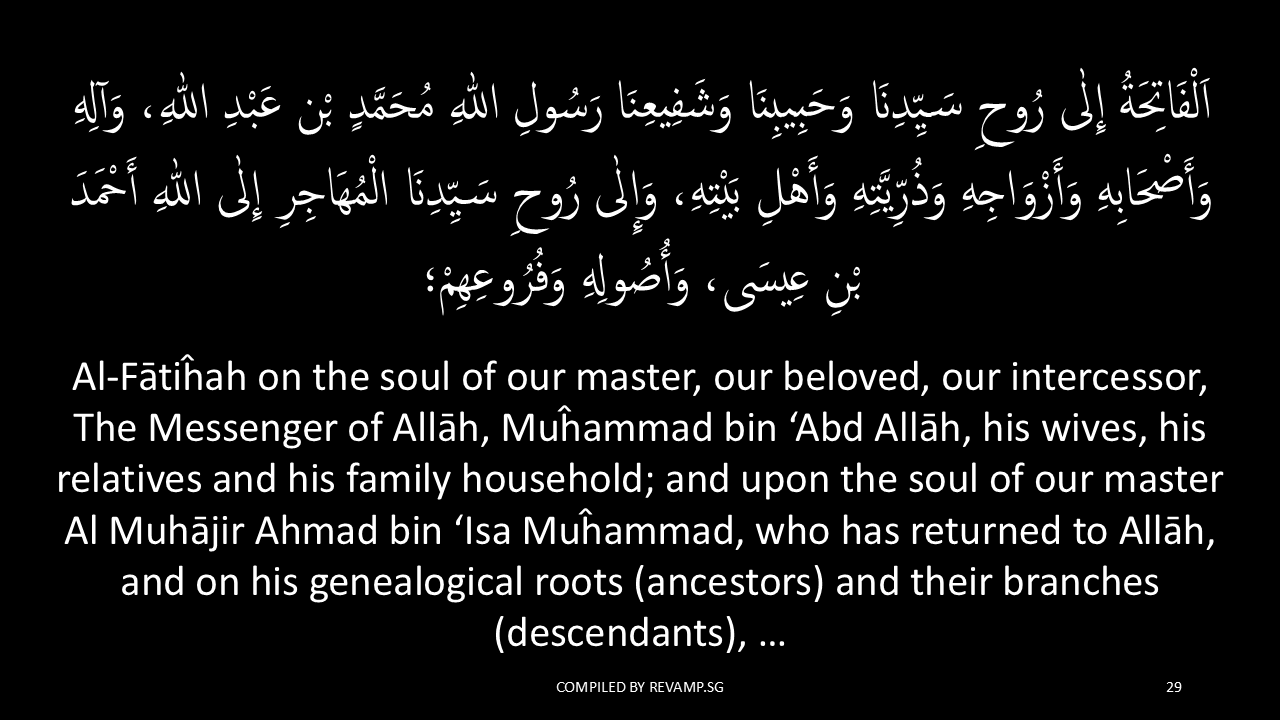 اَلْفَاتِحَةُ إِلٰى رُوحِ سَيِّدِنَا وَحَبِيبِنَا وَشَفِيعِنَا رَسُولِ اللهِ مُحَمَّدٍ بْن عَبْدِ اللهِ، وَآلِهِ
وَأَصْحَابِهِ وَأَزْوَاجِهِ وَذُرِّيَّتِهِ وَأَهْلِ بَيْتِهِ، وَإِلٰى رُوحِ سَيِّدِنَا الْمُهَاجِرِ إِلٰى اللهِ أَحْمَدَ
بْنِ عِيسَى، وَأُصُولِهِ وَفُرُوعِهِمْ؛
Al-Fātiĥah on the soul of our master, our beloved, our intercessor,
The Messenger of Allāh, Muĥammad bin ‘Abd Allāh, his wives, his
relatives and his family household; and upon the soul of our master
Al Muhājir Ahmad bin ‘Isa Muĥammad, who has returned to Allāh,
and on his genealogical roots (ancestors) and their branches
(descendants), …
COMPILED BY REVAMP.SG 29